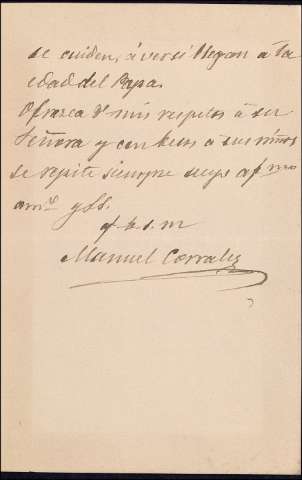 se cuiden, á ver si llegan á la
edad del Papa.
Ofrezca Vd mis respetos á su
Señora y con besos á sus niños
se repite siempre suyo afmo
amo y SS.
q b s m
Manuel Corrales